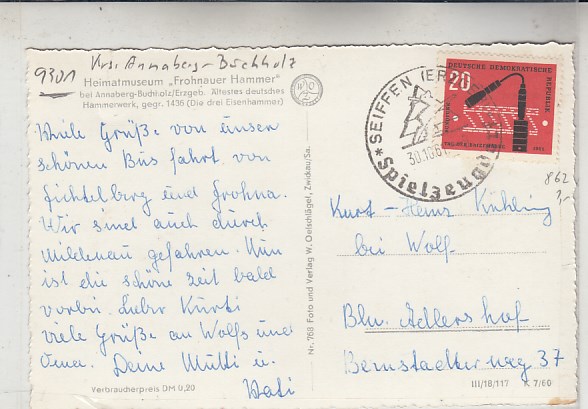 9301 Krs. Annaberg-Buchholz
Heimatmuseum „Frohnauer Hammer"
bei Annaberg-Buchholz/Erzgeb. Ältestes deutsches
Hammerwerk, gegr. 1436 (Die drei Eisenhammer)
Viele Grüße von unser
schönen Bus fahrt von
Fichtelberg und Frohna.
Wir sind auch durch
Mildenau gefahren. Nun
ist die schöne Zeit bald
vorbei. Lieber Kurti
viele Grüße an Wolfs und
Oma. Deine Mutti u.
Vati
Verbraucherpreis DM 0,20
Nr. 768 Foto und Verlag W. Oelschlägel, Zwickau/Sa.
SEIFFEN (ERZ
30.10.61
Spielzeug
DEUTSCHE DEMOKRATISCHE
REPUBLIK
20
TAG DER
1961
862
Kurt-Heinz Kühling
bei Wolf
Bln. Adlershof
Bernstadter weg 37
III/18/117 K 7/60